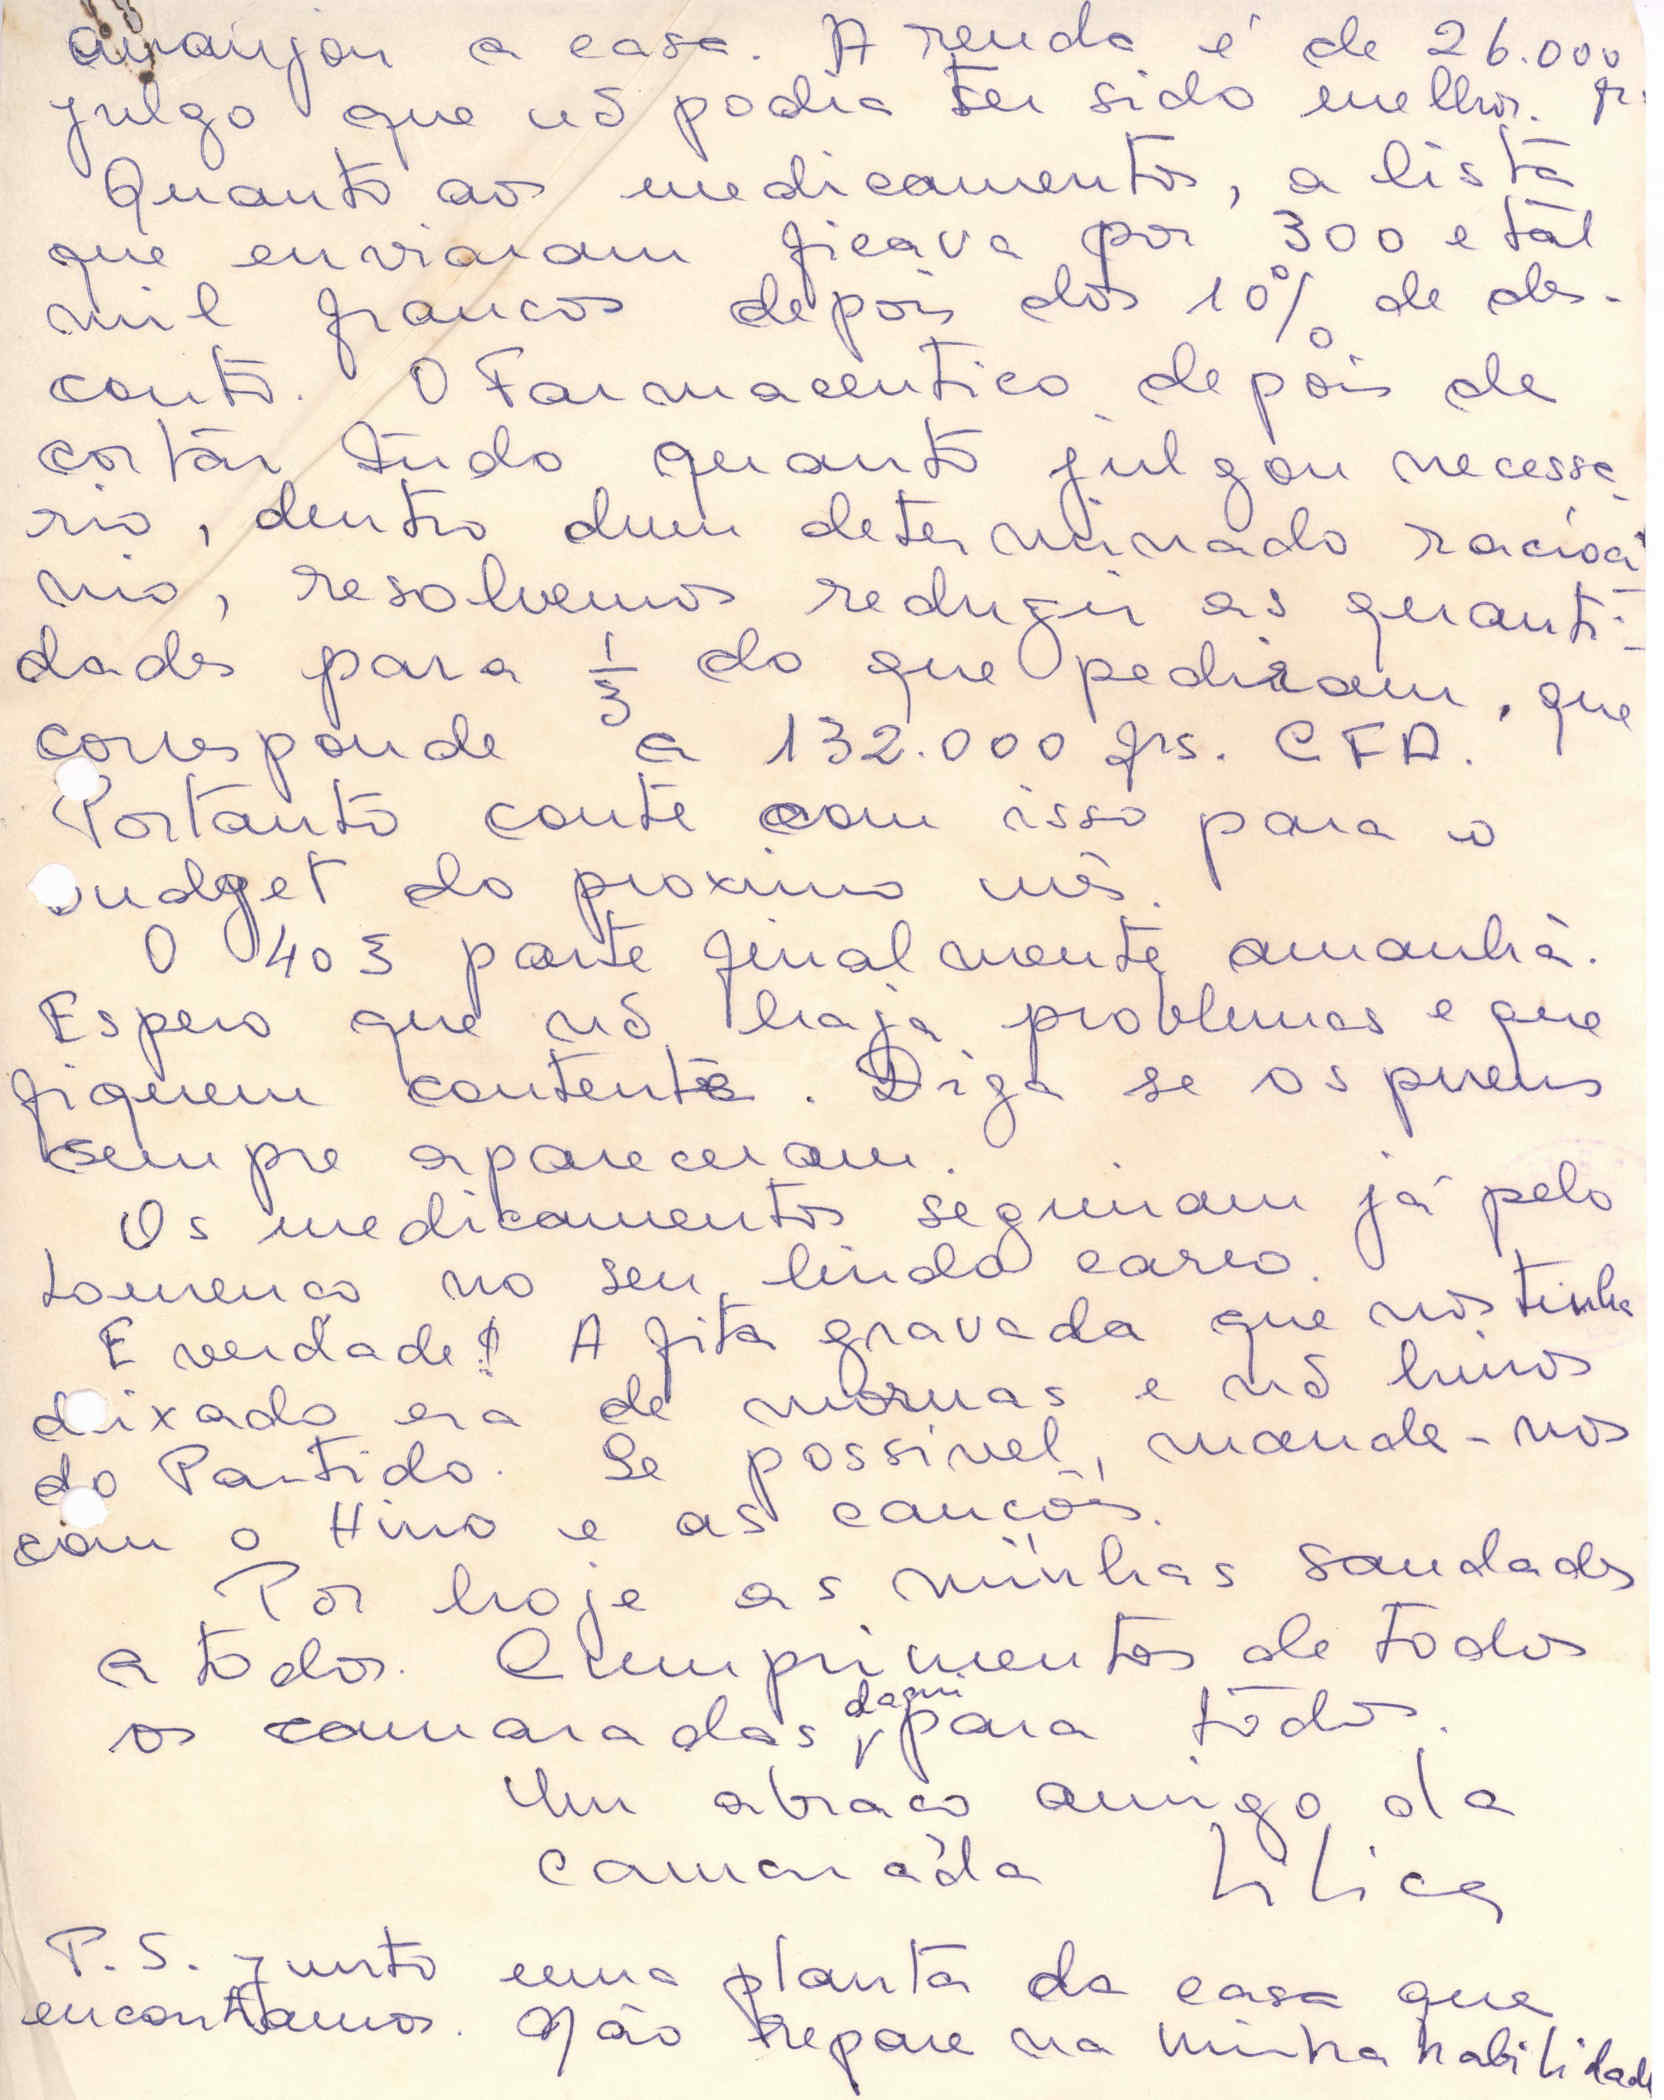 arranjou a casa. A renda é de 26.000
julgo que nõ podia ter sido melhor. fr.
Quanto aos medicamentos, a lista
que enviaram ficava por 300 e tal
mil francos depois dos 10% de des-
conto. O Farmaceutico depois de
cortar tudo quanto julgou necessa
rio, dentro dum determinado racioci
nio, resolvemos reduzir as quanti-
dades para 1/3 do que pediram, que
corresponde a 132.000 frs. CFA.
Portanto conte com isso para o
budget do proximo mês.
O 403 parte finalmente amanhã.
Espero que nõ haja problemas e que
fiquem contentes. Diga se os pneus
sempre apareceram.
Os medicamentos seguiram já pelo
Lourenço no seu lindo carro.
E verdade! A fita gravada que nos tinha
deixado era de mornas e nõ hinos
do Partido. Se possivel, mande-nos
com o Hino e as canções.
Por hoje as minhas saudades
a todos. Cumprimentos de todos
os camaradas daqui para todos.
Um abraço amigo da
camarada Lilica
P.S. Junto uma planta da casa que
encontramos. Não repare na minha habilidade